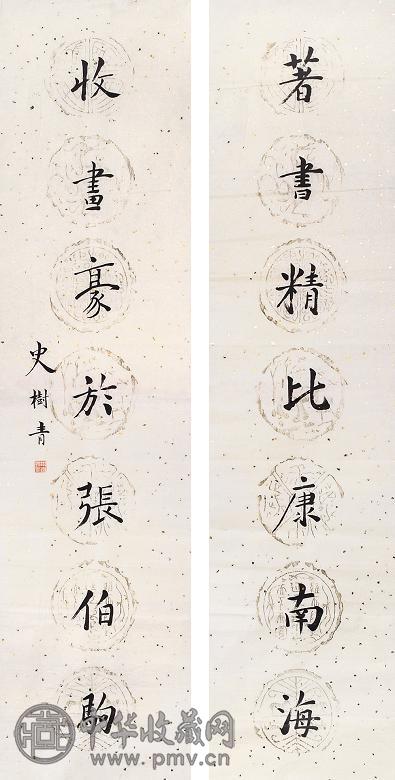 著書精比康南海
收畫豪於張伯駒
史樹青
中华收藏网
www.pmv.cn